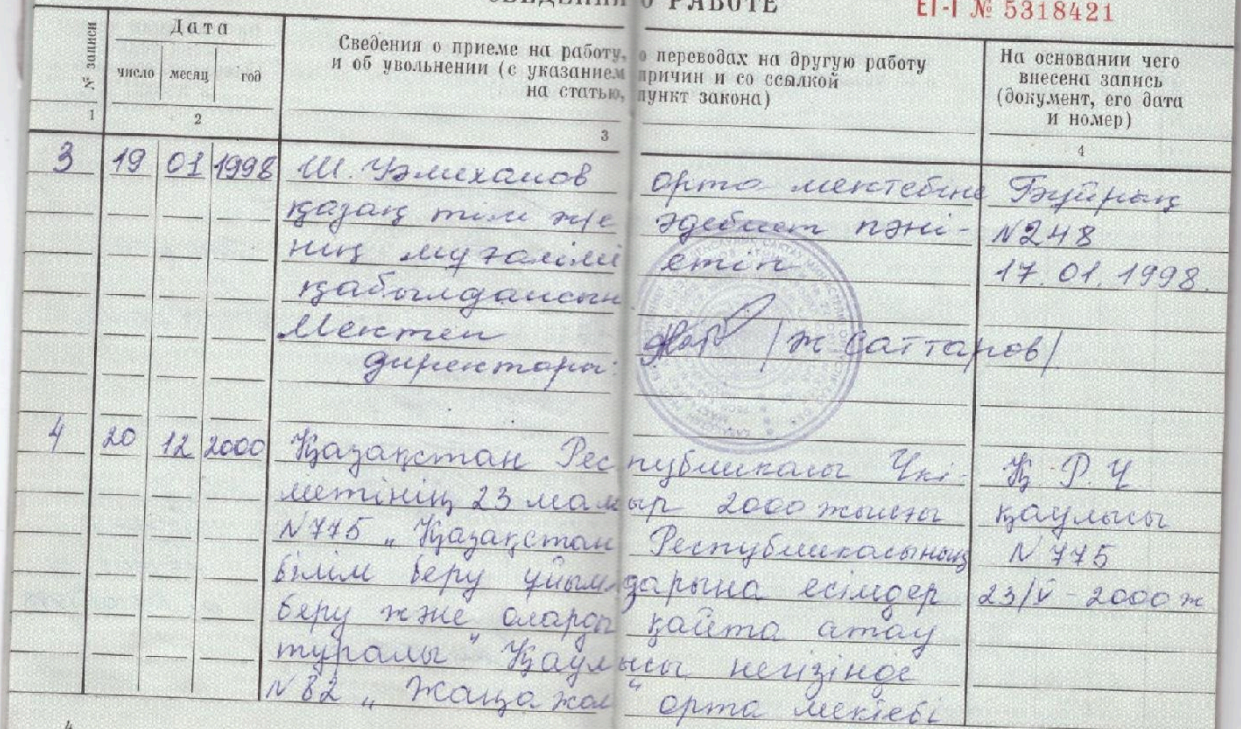 СВЕДЕНИЯ О РАБОТЕ
ЕТ-I № 5318421
№ записи
Дата
число месяц год
Сведения о приеме на работу, о переводах на другую работу
и об увольнении (с указанием причин и со ссылкой
на статью, пункт закона)
На основании чего
внесена запись
(документ, его дата
и номер)
1 2 3 4
3 19 01 1998 Ш. Уәлиханов орта мектебіне Бұйрық
қазақ тілі және әдебиет пәні- N248
нің мұғалімі етіп 17.01.1998.
қабылдансын
Мектеп /Ж Саттаров/
директоры:
4 20 12 2000 Қазақстан Республикасы Үкі- Қ.Р.Ү
метінің 23 мамыр 2000 жылғы қаулысы
N775 „Қазақстан Республикасының N775
білім беру ұйымдарына есімдер 23/V-2000ж
беру және оларды қайта атау
туралы" Қаулысы негізінде
N82 „Жаңа жол" орта мектебі
4